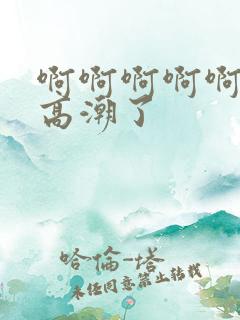 啊啊啊啊啊
高潮了
哈倫-塔
未经同意禁止转载